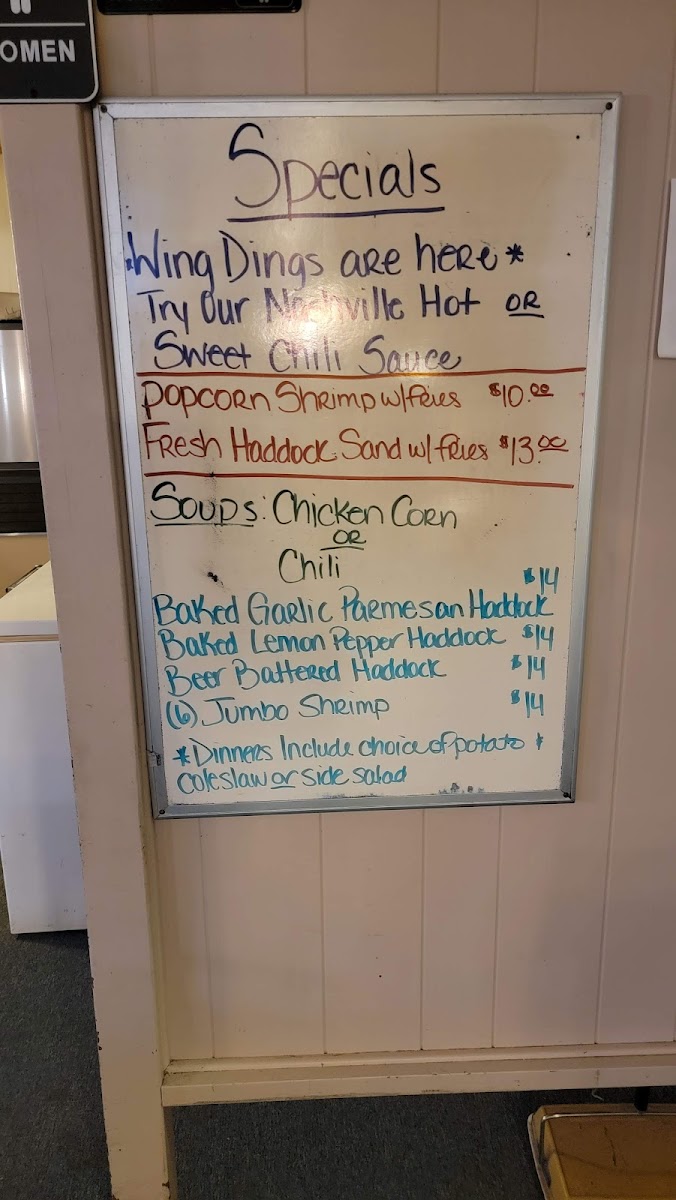 OMEN
Specials
*Wing Dings are here*
Try Our Nashville Hot OR
Sweet Chili Sauce
Popcorn Shrimp w/fries $10.00
Fresh Haddock Sand w/ fries $13.00
Soups: Chicken Corn
OR
Chili
$14
Baked Garlic Parmesan Haddock
Baked Lemon Pepper Haddock $14
Beer Battered Haddock $14
(6) Jumbo Shrimp $14
*Dinners Include choice of potato *
coleslaw or side salad